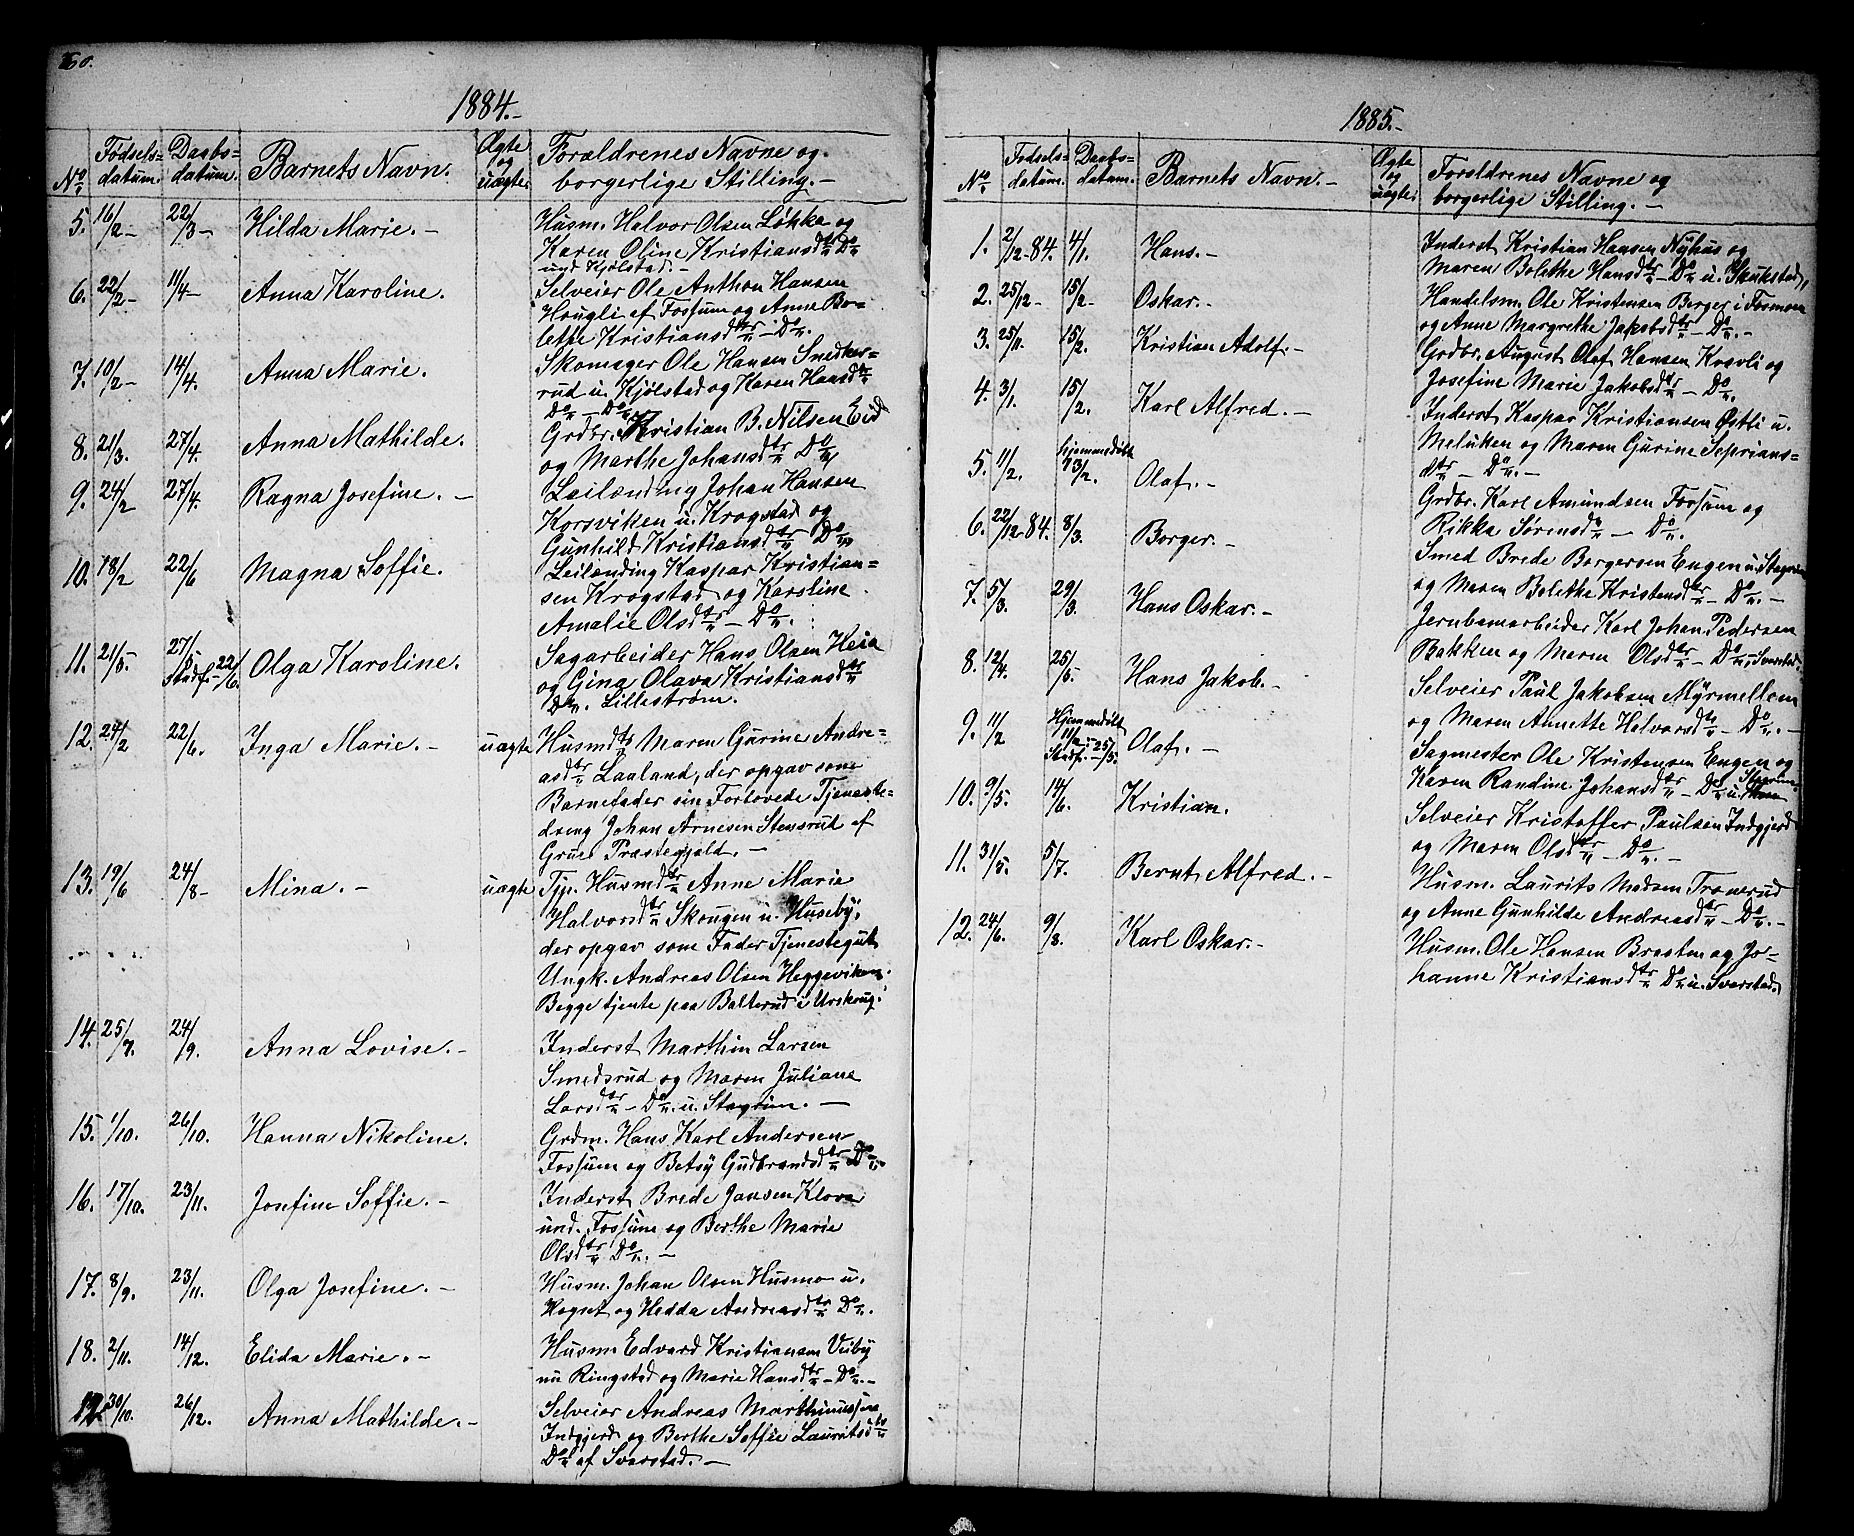 60.
1884.-
No Fødsels= datum. Daabs= datum. Barnets Navn. Ægte og uægte. Forældrenes Navne og borgerlige Stilling.-
5. 16/2- 22/3- Hilda Marie.- Husm. Halvor Olsen Løkka og
Karen Oline Kristiansdtr Do
und Kjølstad.-
6. 22/2- 11/4- Anna Karoline. Selveier Ole Anthon Hansen
Hougli af Fossum og Anne Bo=
lette Kristiansdtr- Do.
7. 10/2- 14/4. Anna Marie. Skomager Ole Hansen Smedker=
rud u. Kjølstad og Karen Hansdtr
Do - Do
8. 21/3. 27/4. Anna Mathilde. Grdbr. Kristian B. Nilsen Eid
og Marthe Johansdtr Do
9. 24/2 27/4. Ragna Josefine.- Leilænding Johan Hansen
Korsviken u. Krogstad og
Gunhild Kristiansdtr Do
10. 18/2 22/6 Magna Soffie. Leilænding Kaspar Kristian=
sen Krogstad og Karoline
Amalie Olsdtr- Do.
11. 21/5. 27/5 Stadf.- 22/6. Olga Karoline. Sagarbeider Hans Olsen Heia
og Gina Olava Kristiansdtr
Do. Lillestrøm.
12. 24/2 22/6. Inga Marie.- uægte Husmdtr Maren Gurine Andre=
asdtr Laaland, der opgav som
Barnefader sin Forlovede Tjeneste=
dreng Johan Arnesen Stensrud af
Grue Præstegjeld.-
13. 19/6 24/8- Mina.- uægte Tjp. Husmdtr Anne Marie
Halvorsdtr Skougen u. Huseby,
der opgav som Fader Tjenestegut
Ungk. Andreas Olsen Heggeviken.
Begge tjente paa Balterud i Urskoug.
14. 25/7. 24/9. Anna Lovise.- Inderst Marthin Larsen
Smedsrud og Maren Juliane
Larsdtr- Do. u. Stagrim.-
15. 1/10. 26/10. Hanna Nikoline. Grdm. Hans Karl Andersen
Fossum og Betsy Gudbrandsdtr Do.
16. 17/10. 23/11. Josefine Soffie.- Inderst Brede Jansen Kløva
und. Fossum og Berthe Marie
Olsdtr Do.-
17. 8/9. 23/11. Olga Josefine.- Husm. Johan Olsen Husmo u.
Kognet og Hedda Andreasdtr Do.
18. 2/11. 14/12. Elida Marie.- Husm Edvard Kristiansen Viiby
nu Ringstad og Marie Hansdtr- Do.-
19. 30/10. 26/12. Anna Mathilde.- Selveier Andreas Marthinussen
Indgjerd og Berthe Soffie Lauritsdtr
Do af Svarstad.-
1885.-
No Fødsels= datum. Daabs= datum. Barnets Navn.- Ægte og uægte. Forældrenes Navne og borgerlige Stilling.-
1. 2/12-84. 4/1. Hans.- Inderst Kristian Hansen Nyhus og
Maren Bolethe Hansdtr- Do u. Skukstad,
2. 25/12- 15/2- Oskar.- Handelsm. Ole Kristensen Berger i Fosmoen
og Anne Margrethe Jakobsdtr- Do.-
3. 25/11. 15/2. Kristian Adolf.- Grdbr. August Olaf Hansen Kravli og
Josefine Marie Jakobsdtr- Do.
4. 3/1. 15/2. Karl Alfred.- Inderst Kaspar Kristiansen Østli u.
Meluken og Maren Gurine Seprians=
dtr- Do.-
5. 11/2. hjemmedøbt 13/2. Olaf.- Grdbr. Karl Amundsen Fossum og
Rikka Sørensdtr- Do.
6. 22/12-84. 8/3. Borger.- Smed Brede Borgersen Engen u. Stagrim
og Maren Bolethe Kristensdtr- Do.-
7. 5/3. 29/3. Hans Oskar.- Jernbanarbeider Karl Johan Pedersen
Bakken og Maren Olsdtr- Do, u. Svarstad.
8. 12/4. 25/5. Hans Jakob.- Selveier Paul Jakobsen Myrmellem
og Maren Annette Halvorsdtr- Do.-
9. 11/2 Hjemmedøbt 11/2- Stadf.- 25/5. Olaf.- Sagmester Ole Kristensen Engen og
Karen Randine Johansdtr- Do u. Stagrim
10. 9/5. 14/6. Kristian. Selveier Kristoffer Paulsen Indgjerd
og Maren Olsdtr- Do.-
11. 31/5. 5/7. Bernt Alfred.- Husm. Laurits Madsen Tronerud
og Anne Gunhilde Andreasdtr- Do.-
12. 24/6. 9/8. Karl Oskar.- Husm. Ole Hansen Braaten og Jo=
hanne Kristiansdtr Do u. Svarstad.